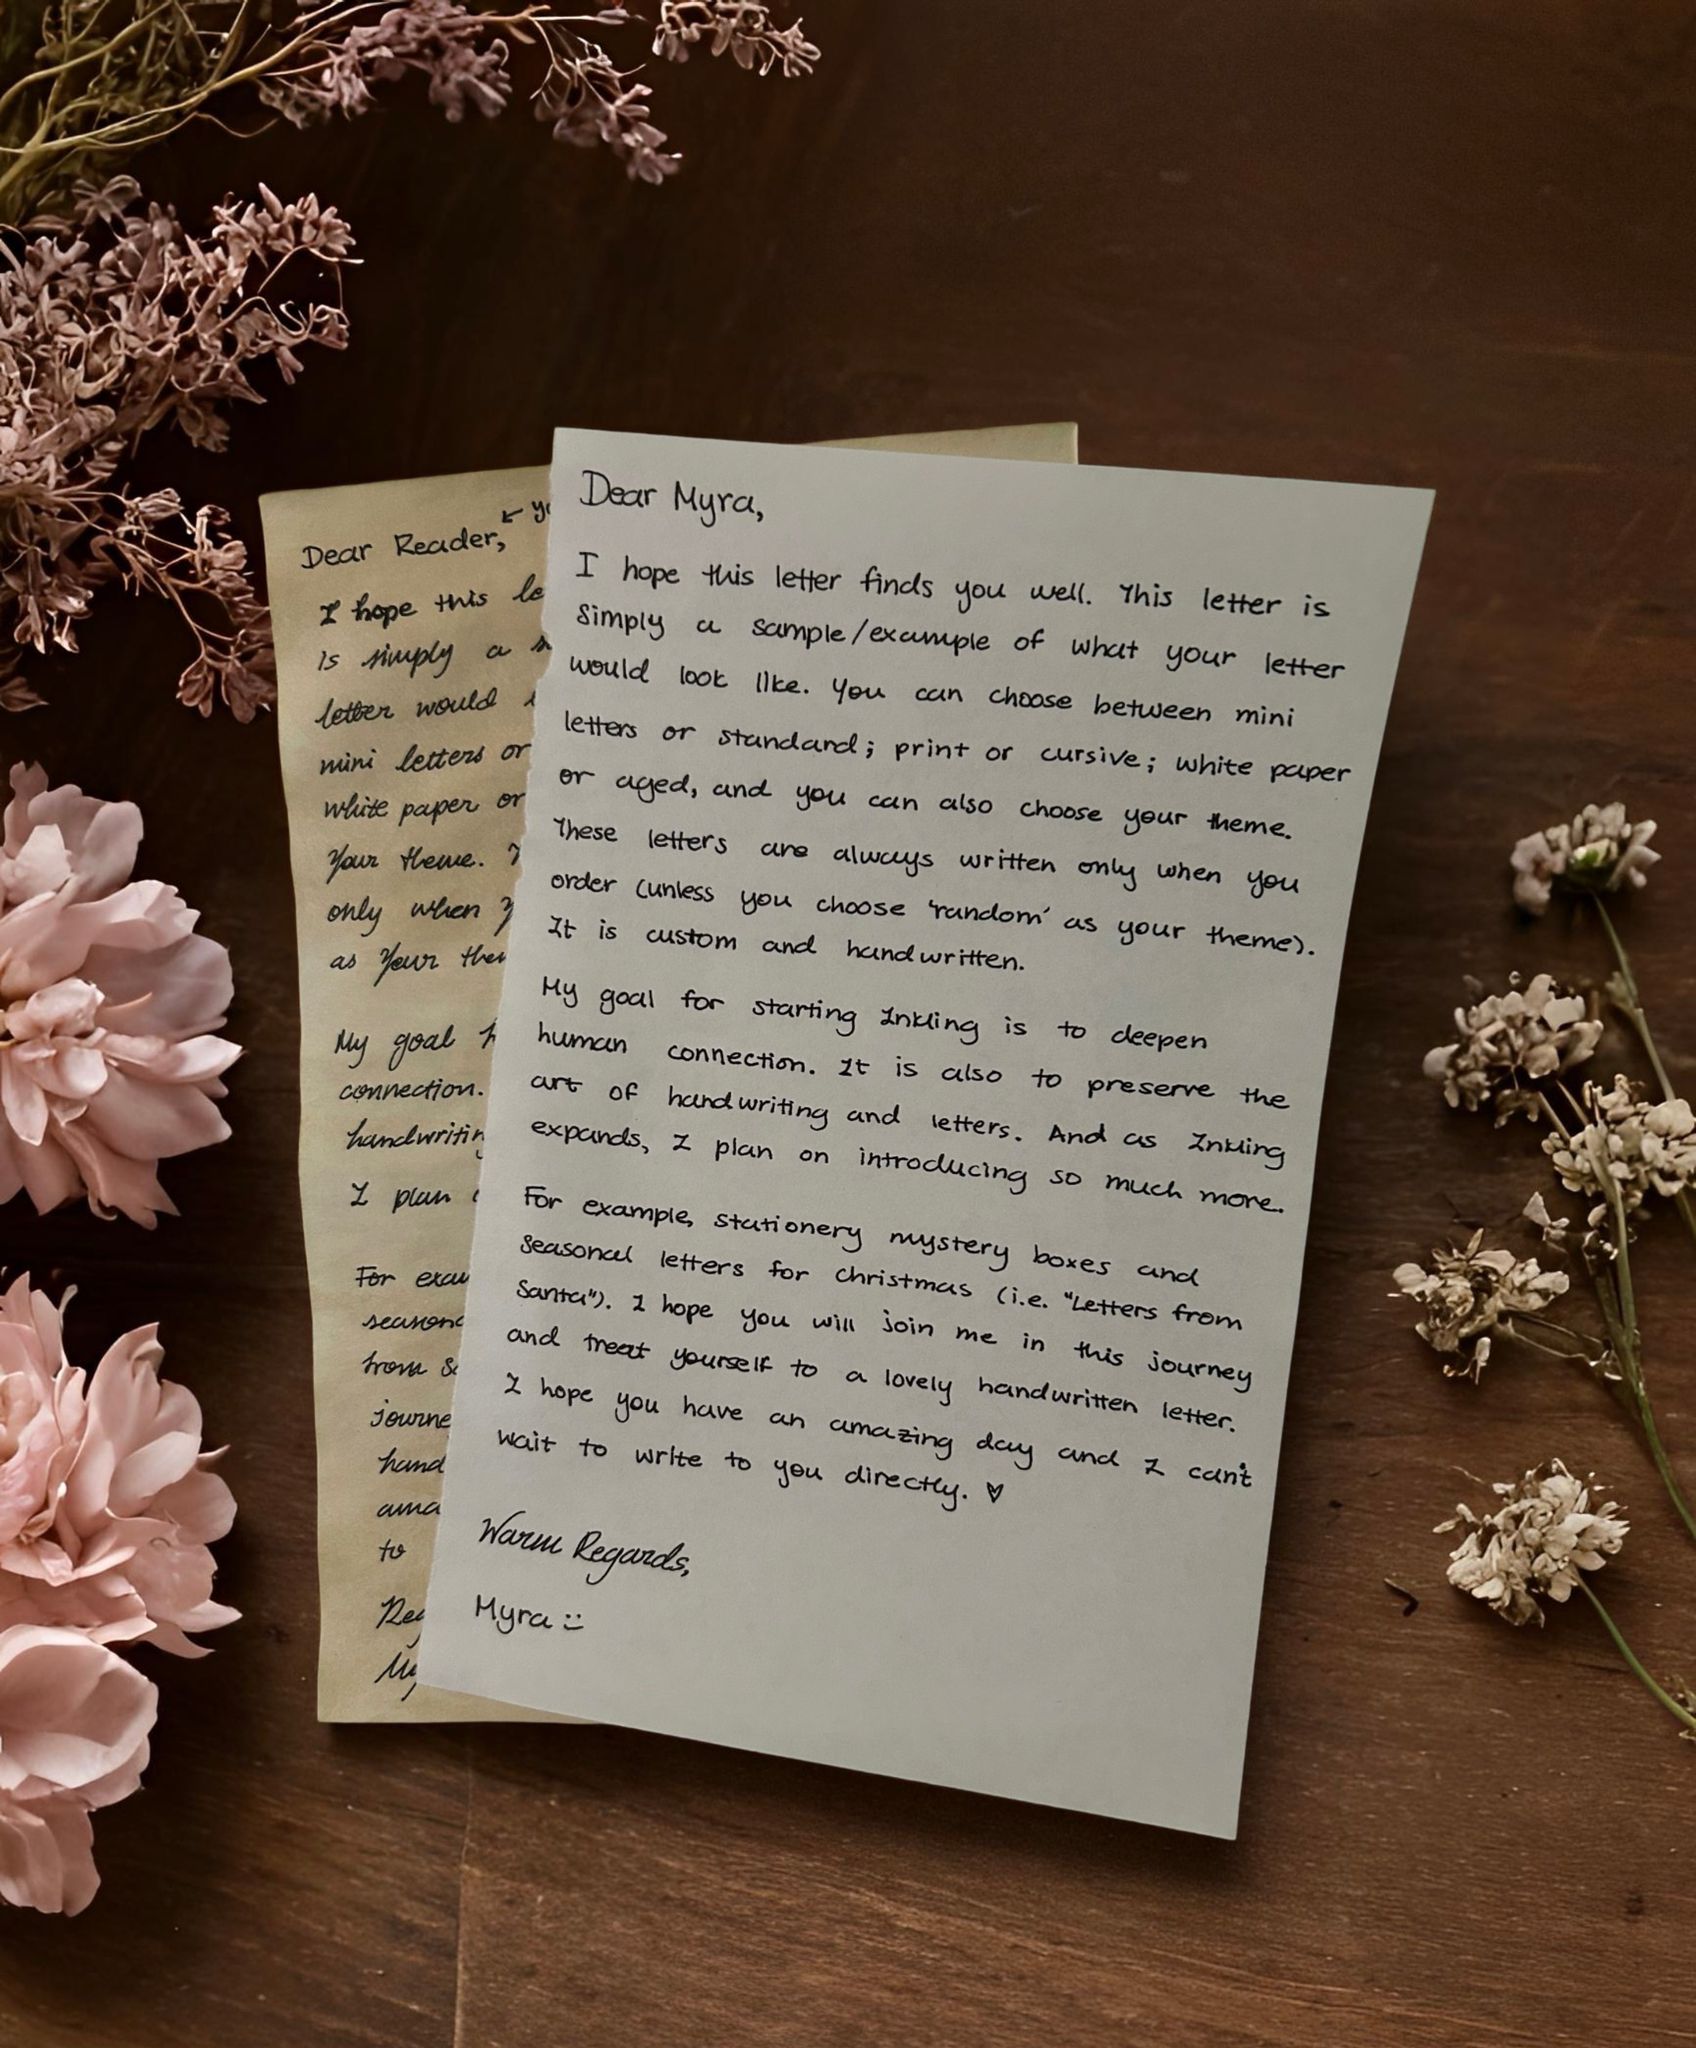 Dear Myra,
I hope this letter finds you well. This letter is
simply a sample/example of what your letter
would look like. You can choose between mini
letters or standard; print or cursive; white paper
or aged, and you can also choose your theme.
These letters are always written only when you
order (unless you choose 'random' as your theme).
It is custom and handwritten.
My goal for starting Inkling is to deepen
human connection. It is also to preserve the
art of handwriting and letters. And as Inkling
expands, I plan on introducing so much more.
For example, stationery mystery boxes and
seasonal letters for Christmas (i.e. "Letters from
Santa"). I hope you will join me in this journey
and treat yourself to a lovely handwritten letter.
I hope you have an amazing day and I can't
wait to write to you directly. ♥
Warm Regards,
Myra :)
Dear Reader, ←
I hope this
is simply a
letter would
mini letters or
white paper or
your theme.
only when
as your
My goal
connection.
handwritin
I plan
For
from
to